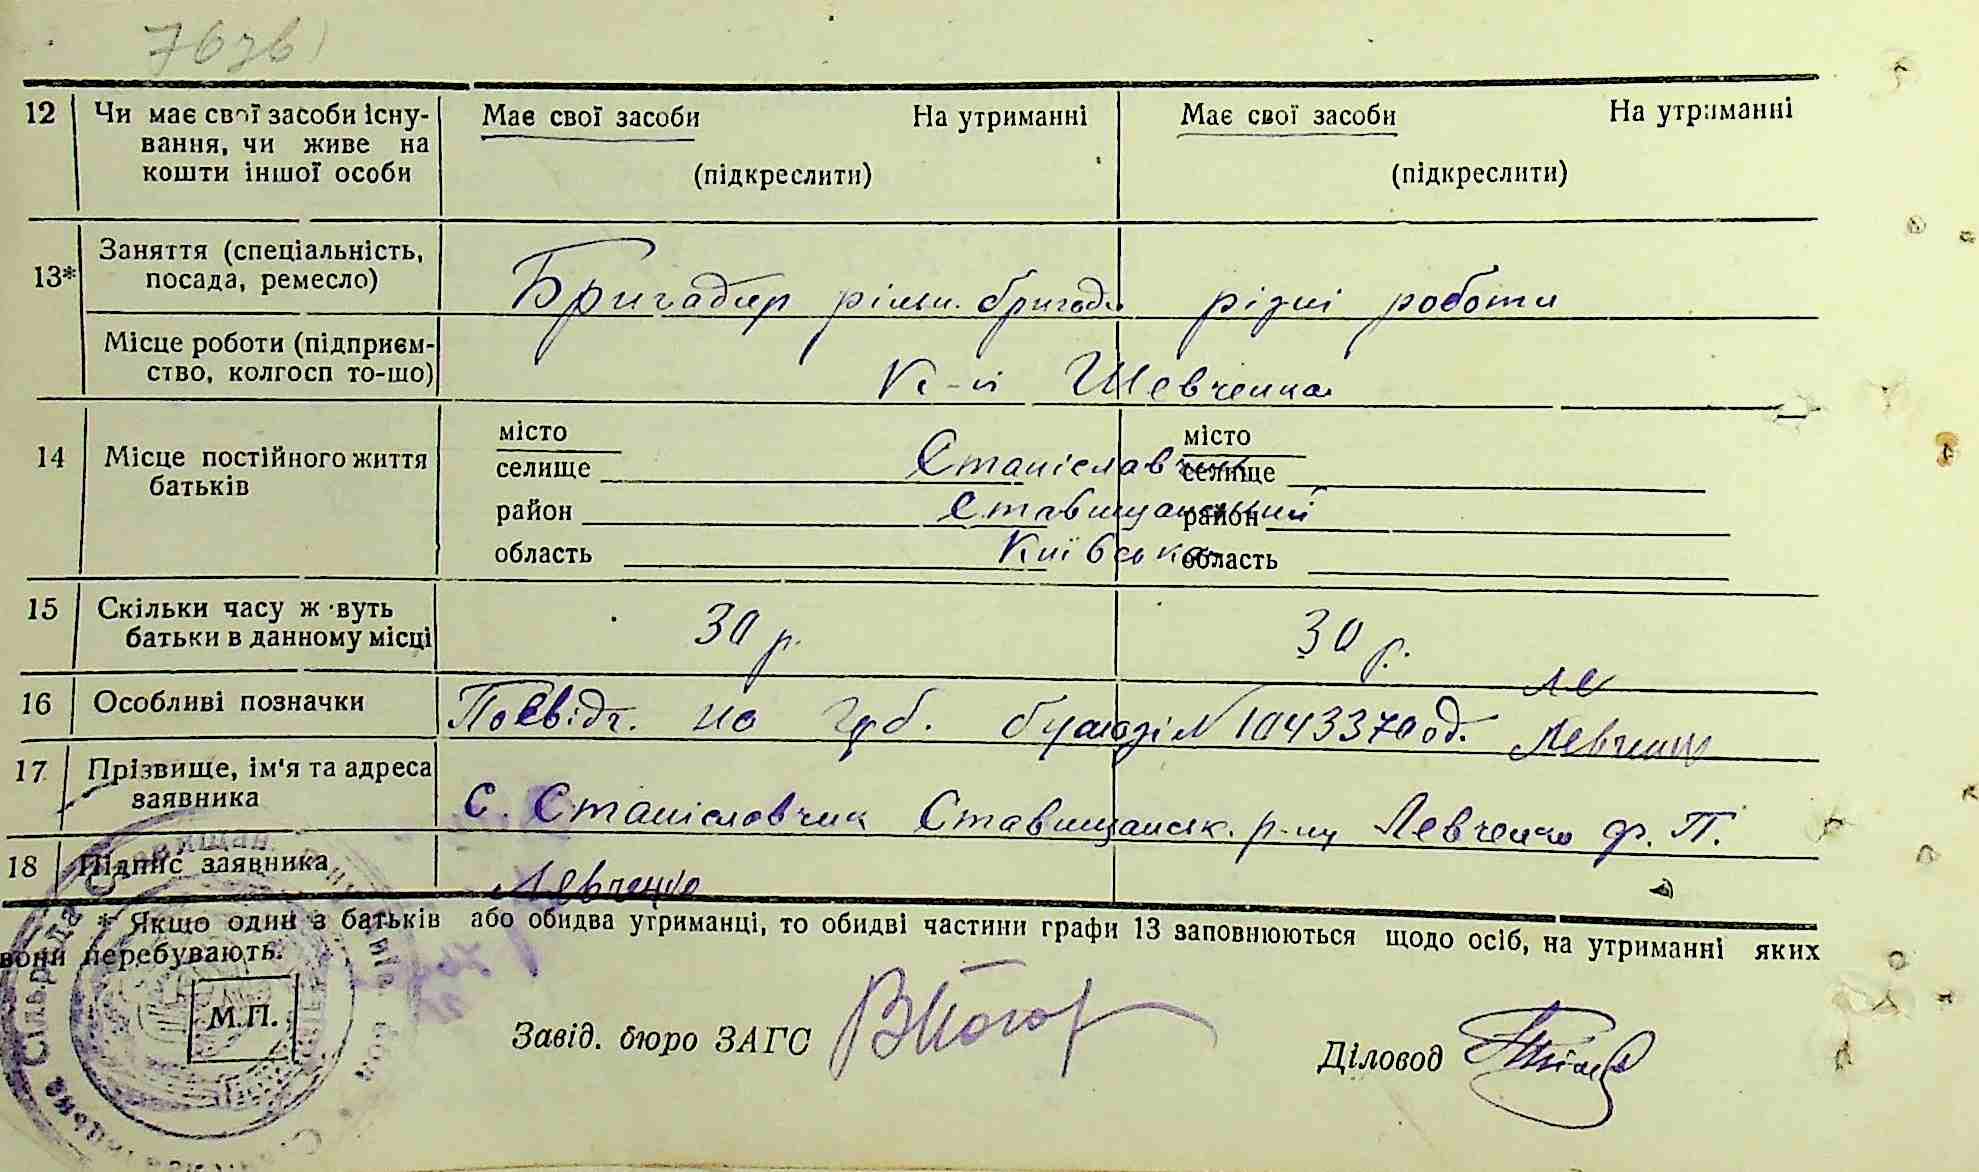 12 Чи має свої засоби існу- Має свої засоби На утриманні Має свої засоби На утриманні
вання, чи живе на
кошти іншої особи (підкреслити) (підкреслити)
13* Заняття (спеціальність,
посада, ремесло) Бригадир рільн. бригади різні роботи
Місце роботи (підприєм-
ство, колгосп то-що) К-п Шевченка
14 Місце постійного життя
батьків
місто місто
селище Станіславчик селище
район Ставищанський район
область Київська область
15 Скільки часу ж вуть
батьки в данному місці 30 р. 30 р.
16 Особливі позначки Посвідч. на грб. бумазі № 1043370 од. Левченко
17 Прізвище, ім'я та адреса
заявника с. Станіславчик Ставищанськ. р-ну Левченко Ф. П.
18 Підпис заявника Левченко
* Якщо один з батьків або обидва утриманці, то обидві частини графи 13 заповнюються щодо осіб, на утриманні яких
вони перебувають.
М.П.
Завід. бюро ЗАГС
Діловод